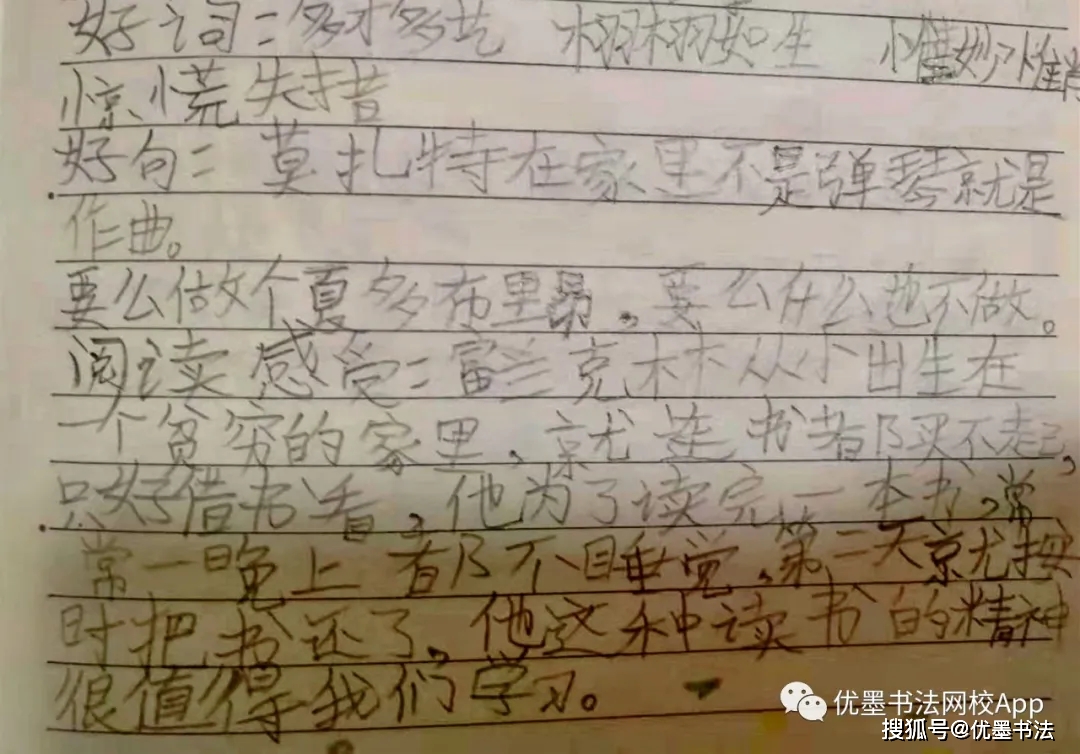 好词：多才多艺 栩栩如生 惟妙惟肖
惊慌失措
好句：莫扎特在家里不是弹琴就是
作曲。
要么做个夏多布里昂，要么什么也不做。
阅读感受：富兰克林从小出生在
一个贫穷的家里，就连书都买不起，
只好借书看，他为了读完一本书，常
常一晚上都不睡觉，第二天就按
时把书还了，他这种读书的精神
很值得我们学习。
优墨书法网校App
搜狐号@优墨书法